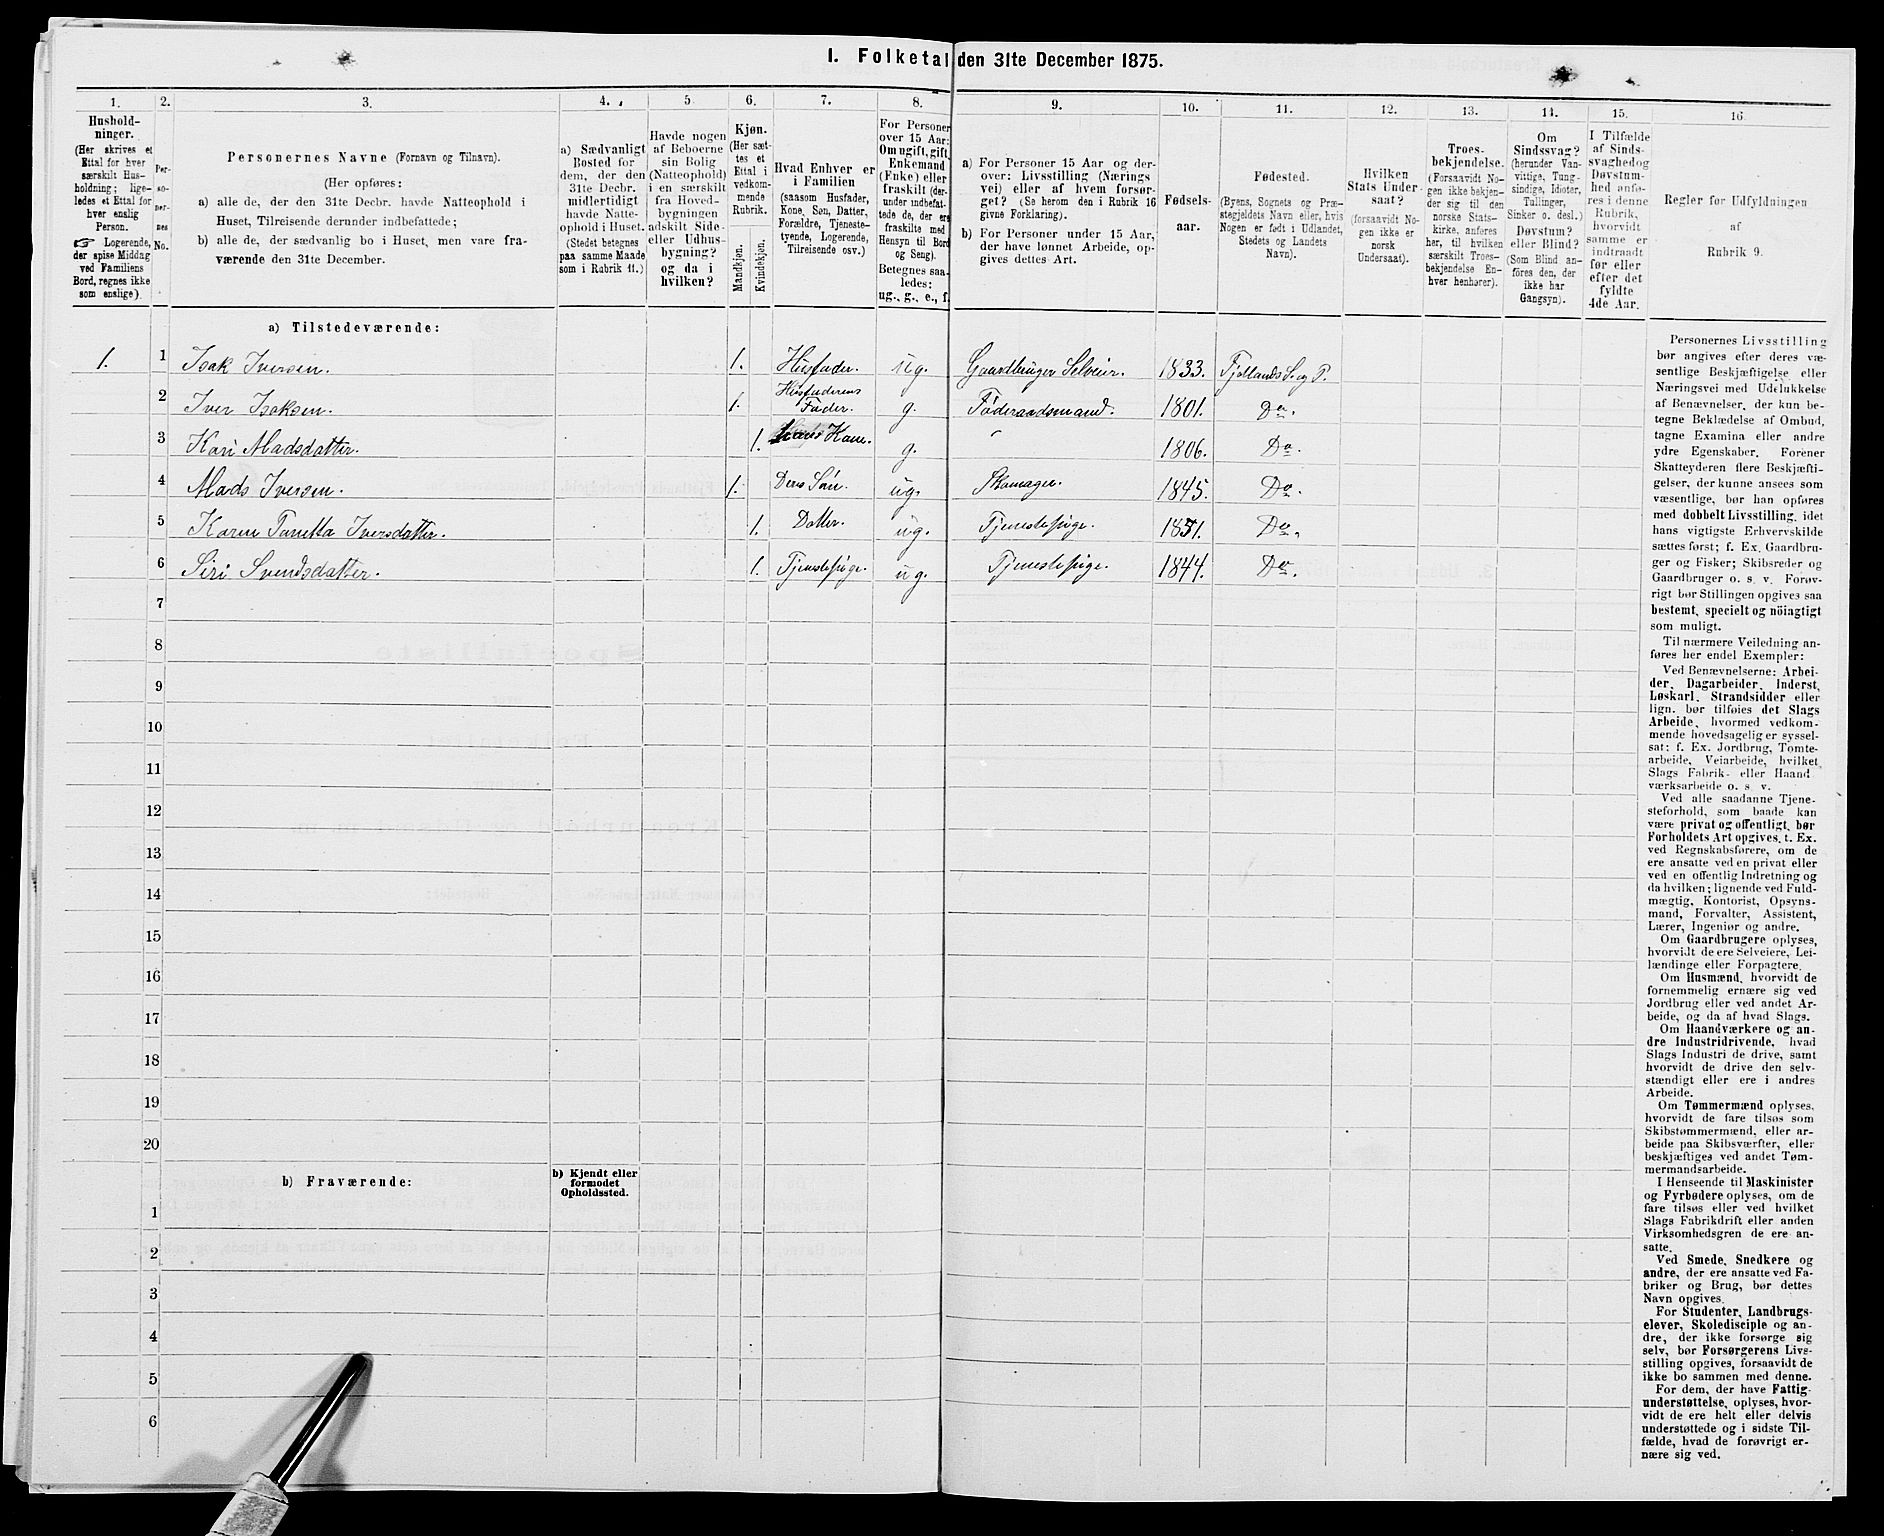 I. Folketal den 31te December 1875.
1.
Hushold-
ninger.
(Her skrives et
Ettal for hver
særskilt Hus-
holdning; lige-
ledes et Ettal for
hver enslig
Person.
☞ Logerende,
der spise Middag
ved Familiens
Bord, regnes ikke
som enslige).
2.
Per-
so-
ner-
nes
No.
3.
Personernes Navne (Fornavn og Tilnavn).
(Her opføres:
a) alle de, der den 31te Decbr. havde Natteophold i
Huset, Tilreisende derunder indbefattede;
b) alle de, der sædvanlig bo i Huset, men vare fra-
værende den 31te December.
4.
a) Sædvanligt
Bosted for
dem, der den
31te Decbr.
midlertidigt
havde Natte-
ophold i Huset.
(Stedet betegnes
paa samme Maade
som i Rubrik 11.)
5
Havde nogen
af Beboerne
sin Bolig
(Natteophold)
i en særskilt
fra Hoved-
bygningen
adskilt Side-
eller Udhus-
bygning?
og da i
hvilken?
6.
Kjøn.
(Her sæt-
tes et
Ettal i
vedkom-
mende
Rubrik.
Mandkjøn.
Kvindekjøn.
7.
Hvad Enhver er
i Familien
(saasom Husfader,
Kone, Søn, Datter,
Forældre, Tjeneste-
tyende, Logerende,
Tilreisende osv.)
8.
For Personer
over 15 Aar:
Om ugift, gift,
Enkemand
(Enke) eller
fraskilt (der-
under indbefat-
tede de, der ere
fraskilte med
Hensyn til Bord
og Seng).
Betegnes saa-
ledes:
ug., g., e., f.
9.
a) For Personer 15 Aar og der-
over: Livsstilling (Nærings
vei) eller af hvem forsør-
get? (Se herom den i Rubrik 16
givne Forklaring).
b) For Personer under 15 Aar,
der have lønnet Arbeide, op-
gives dettes Art.
10.
Fødsels-
aar.
11.
Fødested.
(Byens, Sognets og Præ-
stegjeldets Navn eller, hvis
Nogen er født i Udlandet,
Stedets og Landets
Navn).
12.
Hvilken
Stats Under-
saat?
(forsaavidt No-
gen ikke er
norsk
Undersaat).
13.
Troes-
bekjendelse.
(Forsaavidt No-
gen ikke bekjen-
der sig til den
norske Stats-
kirke, anføres
her, til hvilken
særskilt Troes-
bekjendelse En-
hver henhører).
14.
Om
Sindssvag?
(herunder Van-
vittige, Tung-
sindige, Idioter,
Tullinger,
Sinker o. desl.)
Døvstum?
eller Blind?
(Som Blind an-
føres den, der
ikke har
Gangsyn).
15.
I Tilfælde
af Sinds-
svaghed og
Døvstum-
hed anfø-
res i denne
Rubrik,
hvorvidt
samme er
indtraadt
før eller
efter det
fyldte
4de Aar.
16.
Regler før Udfyldningen
af
Rubrik 9.
a) Tilstedeværende:
1. 1 Isak Iversen. 1. Husfader. ug. Gaardbruger Selveier. 1833. Fjotlands S. og P.
2 Iver Isaksen. 1. Husfaderens Fader. g. Føderaadsmand. 1801. Do.
3 Kari Madsdatter. 1. Hans Kone. g. 1806. Do.
4 Mads Iversen. 1. Deres Søn. ug. Skomager. 1845. Do.
5 Karen Tonetta Iversdatter. 1. Datter. ug. Tjenestepige. 1851. Do.
6 Siri Svendsdatter. 1. Tjenestepige. ug. Tjenestepige. 1844. Do.
7
8
9
10
11
12
13
14
15
16
17
18
19
20
b) Fraværende:
b) Kjendt eller
formodet
Opholdssted.
1
2
3
4
5
6
Personernes Livsstilling
bør angives efter deres væ-
sentlige Beskjæftigelse eller
Næringsvei med Udelukkelse
af Benævnelser, der kun be-
tegne Beklædelse af Ombud,
tagne Examina eller andre
ydre Egenskaber. Forener
Skatteyderen flere Beskjæfti-
gelser, der kunne ansees som
væsentlige, bør han opføres
med dobbelt Livsstilling, idet
hans vigtigste Erhvervskilde
sættes først; f. Ex. Gaardbru-
ger og Fisker; Skibsreder og
Gaardbruger o. s. v. Forøv-
rigt bør Stillingen opgives saa
bestemt, specielt og nöiagtigt
som muligt.
Til nærmere Veiledning an-
føres her endel Exempler:
Ved Benævnelserne: Arbei-
der, Dagarbeider, Inderst,
Løskarl, Strandsidder eller
lign. bør tilføies det Slags
Arbeide, hvormed vedkom-
mende hovedsagelig er syssel-
sat: f. Ex. Jordbrug, Tomte-
arbeide, Veiarbeide, hvilket
Slags Fabrik- eller Haand
værksarbeide o. s. v.
Ved alle saadanne Tjene-
steforhold, som baade kan
være privat og offentligt, bør
Forholdets Art opgives, t. Ex.
ved Regnskabsførere, om de
ere ansatte ved en privat eller
ved en offentlig Indretning og
da hvilken; lignende ved Fuld-
mægtig, Kontorist, Opsyns-
mand, Forvalter, Assistent,
Lærer, Ingeniør og andre.
Om Gaardbrugere oplyses,
hvorvidt de ere Selveiere, Lei-
lændinge eller Forpagtere.
Om Husmænd, hvorvidt de
fornemmelig ernære sig ved
Jordbrug eller ved andet Ar-
beide, og da af hvad Slags.
Om Haandværkere og an-
dre Industridrivende, hvad
Slags Industri de drive, samt
hvorvidt de drive den selv-
stændigt eller ere i andres
Arbeide.
Om Tømmermænd oplyses,
hvorvidt de fare tilsøs som
Skibstømmermænd, eller ar-
beide paa Skibsværfter, eller
beskjæftiges ved andet Tøm-
mermandsarbeide.
I Henseende til Maskinister
og Fyrbødere oplyses, om de
fare tilsøs eller ved hvilket
Slags Fabrikdrift eller anden
Virksomhedsgren de ere an-
satte.
Ved Smede, Snedkere og
andre, der ere ansatte ved Fa-
briker og Brug, bør dettes
Navn opgives.
For Studenter, Landbrugs-
elever, Skoledisciple og an-
dre, der ikke forsørge sig
selv, bør Forsørgerens Livs-
stilling opgives, forsaavidt de
ikke bo sammen med denne.
For dem, der have Fattig-
understøttelse, oplyses, hvor-
vidt de ere helt eller delvis
understøttede og i sidste Til-
fælde, hvad de forøvrigt er-
nære sig ved.